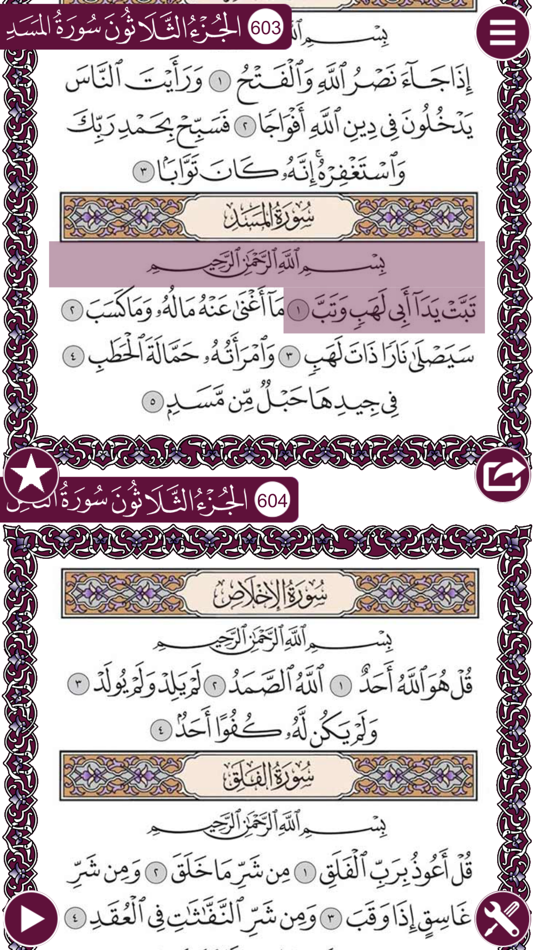 الجُزْءُ الثَّلَاثُونَ سُورَةُ المَسَدِ 603
إِذَا جَآءَ نَصْرُ ٱللَّهِ وَٱلْفَتْحُ ١ وَرَأَيْتَ ٱلنَّاسَ
يَدْخُلُونَ فِى دِينِ ٱللَّهِ أَفْوَاجًا ٢ فَسَبِّحْ بِحَمْدِ رَبِّكَ
وَٱسْتَغْفِرْهُ ۚ إِنَّهُۥ كَانَ تَوَّابًۢا ٣
سُورَةُ المَسَدِ
بِسْمِ ٱللَّهِ ٱلرَّحْمَٰنِ ٱلرَّحِيمِ
تَبَّتْ يَدَآ أَبِى لَهَبٍ وَتَبَّ ١ مَآ أَغْنَىٰ عَنْهُ مَالُهُۥ وَمَا كَسَبَ ٢
سَيَصْلَىٰ نَارًا ذَاتَ لَهَبٍ ٣ وَٱمْرَأَتُهُۥ حَمَّالَةَ ٱلْحَطَبِ ٤
فِى جِيدِهَا حَبْلٌ مِّن مَّسَدٍۭ ٥
الجُزْءُ الثَّلَاثُونَ سُورَةُ 604
سُورَةُ الإِخْلَاصِ
بِسْمِ ٱللَّهِ ٱلرَّحْمَٰنِ ٱلرَّحِيمِ
قُلْ هُوَ ٱللَّهُ أَحَدٌ ١ ٱللَّهُ ٱلصَّمَدُ ٢ لَمْ يَلِدْ وَلَمْ يُولَدْ ٣
وَلَمْ يَكُن لَّهُۥ كُفُوًا أَحَدٌۢ ٤
سُورَةُ الفَلَقِ
بِسْمِ ٱللَّهِ ٱلرَّحْمَٰنِ ٱلرَّحِيمِ
قُلْ أَعُوذُ بِرَبِّ ٱلْفَلَقِ ١ مِن شَرِّ مَا خَلَقَ ٢ وَمِن شَرِّ
غَاسِقٍ إِذَا وَقَبَ ٣ وَمِن شَرِّ ٱلنَّفَّٰثَٰتِ فِى ٱلْعُقَدِ ٤